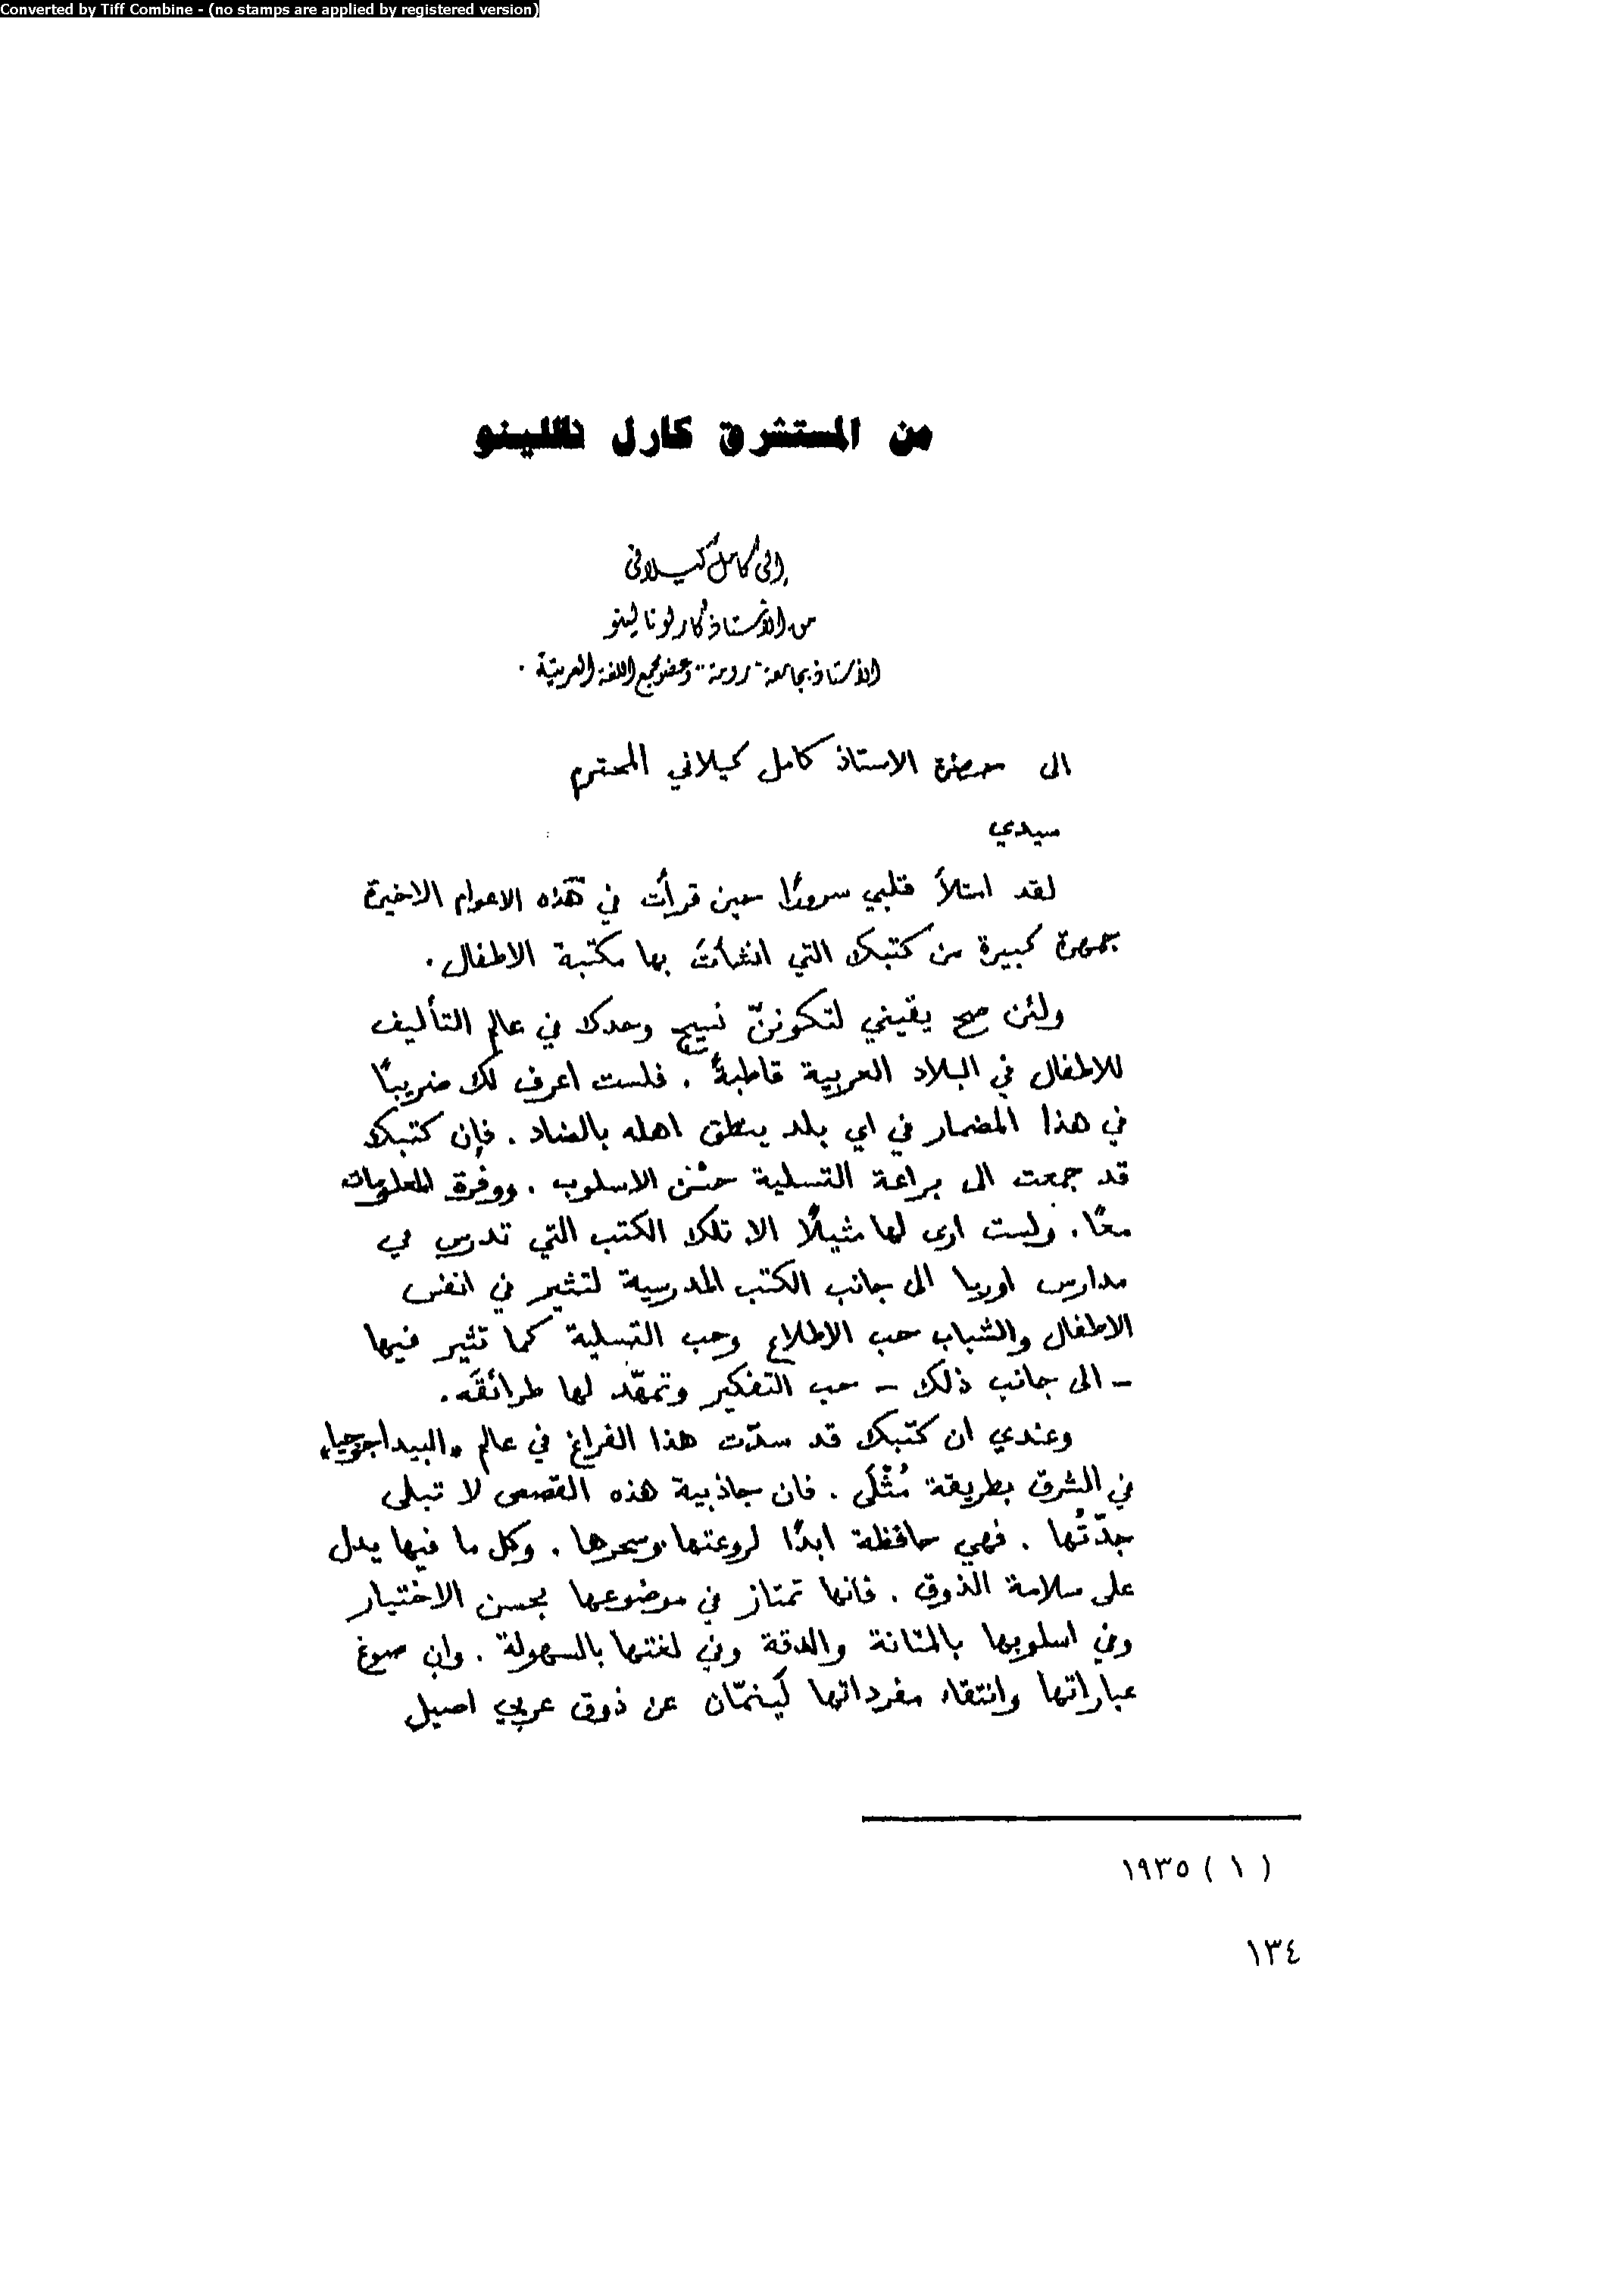 Converted by Tiff Combine - (no stamps are applied by registered version)
من المستشرق كارل نالّلينو
إلى كامل كيلانى
من الأستاذ كارلو نالينو
الأستاذ بجامعة "رومة" وعضو مجمع اللغة العربيّة .
الى حضرة الاستاذ كامل كيلاني المحترم
سيدي
لقد امتلأ قلبي سرورًا حين قرأت في هذه الاعوام الاخيرة
جمهرة كبيرة من كتبك التي انشأتَ بها مكتبة الاطفال .
ولئن صح يقيني لتكوننّ نسيج وحدك في عالم التأليف
للاطفال في البلاد العربية قاطبةً . فلست اعرف لك ضريبًا
في هذا المضمار في اي بلد ينطق اهله بالضاد . فإن كتبك
قد جمعت الى براعة التسلية حسْن الاسلوب . ووفْرة المعلومات
معًا . ولست ارى لها مثيلًا الا تلك الكتب التي تدرس في
مدارس اوربا الى جانب الكتب المدرسية لتثير في انفس
الاطفال والشباب حب الاطلاع وحب التسلية كما تثير فيها
– الى جانب ذلك – حب التفكير وتمهّد لها طرائقَه .
وعندي ان كتبك قد سدّت هذا الفراغ في عالم «البيداجوجيا»
في الشرق بطريقة مُثْلَى . فان جاذبية هذه القصص لا تبلى
جدّتُها . فهي حافظة ابدًا لروعتها وسحرها . وكل ما فيها يدل
على سلامة الذوق . فانها تمتاز في موضوعها بحسن الاختيار
وفي اسلوبها بالمتانة والدقة وفي لغتها بالسهولة . وان صوغ
عباراتها وانتقاء مفرداتها لَينمّان عن ذوق عربي اصيل
( ١ ) ١٩٣٥
١٣٤